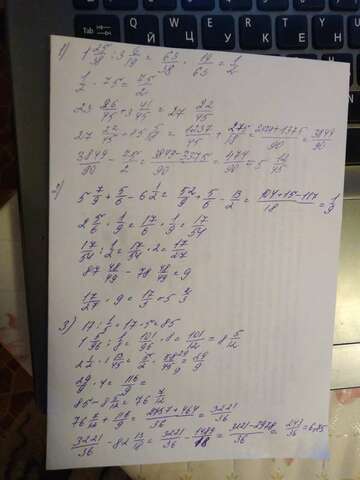 1) 1 25/38 : 3 6/19 = 63/38 · 19/63 = 1/2
1/2 · 75 = 75/2
23 86/45 + 3 41/45 = 27 22/45
27 22/45 + 15 5/18 = 1237/45 + 275/18 = 2474+1375/90 = 3849/90
3849/90 - 75/2 = 3849-3375/90 = 474/90 = 5 12/45
2) 5 7/9 + 5/6 - 6 1/2 = 52/9 + 5/6 - 13/2 = 104+15-117/18 = 1/9
2 5/6 · 1/9 = 17/6 · 1/9 = 17/54
17/54 : 1/2 = 17/54 · 2 = 17/27
87 48/49 - 78 48/49 = 9
17/27 · 9 = 17/3 = 5 2/3
3) 17 : 1/5 = 17 · 5 = 85
1 5/96 : 1/8 = 101/96 · 8 = 101/12 = 8 5/12
2 1/2 · 1 13/45 = 5/2 · 58/45 = 29/9
29/9 · 4 = 116/9
85 - 8 5/12 = 76 7/12
76 7/12 + 116/9 = 2757+464/36 = 3221/36
3221/36 - 82 13/18 = 3221/36 - 1489/18 = 3221-2978/36 = 243/36 = 6,75